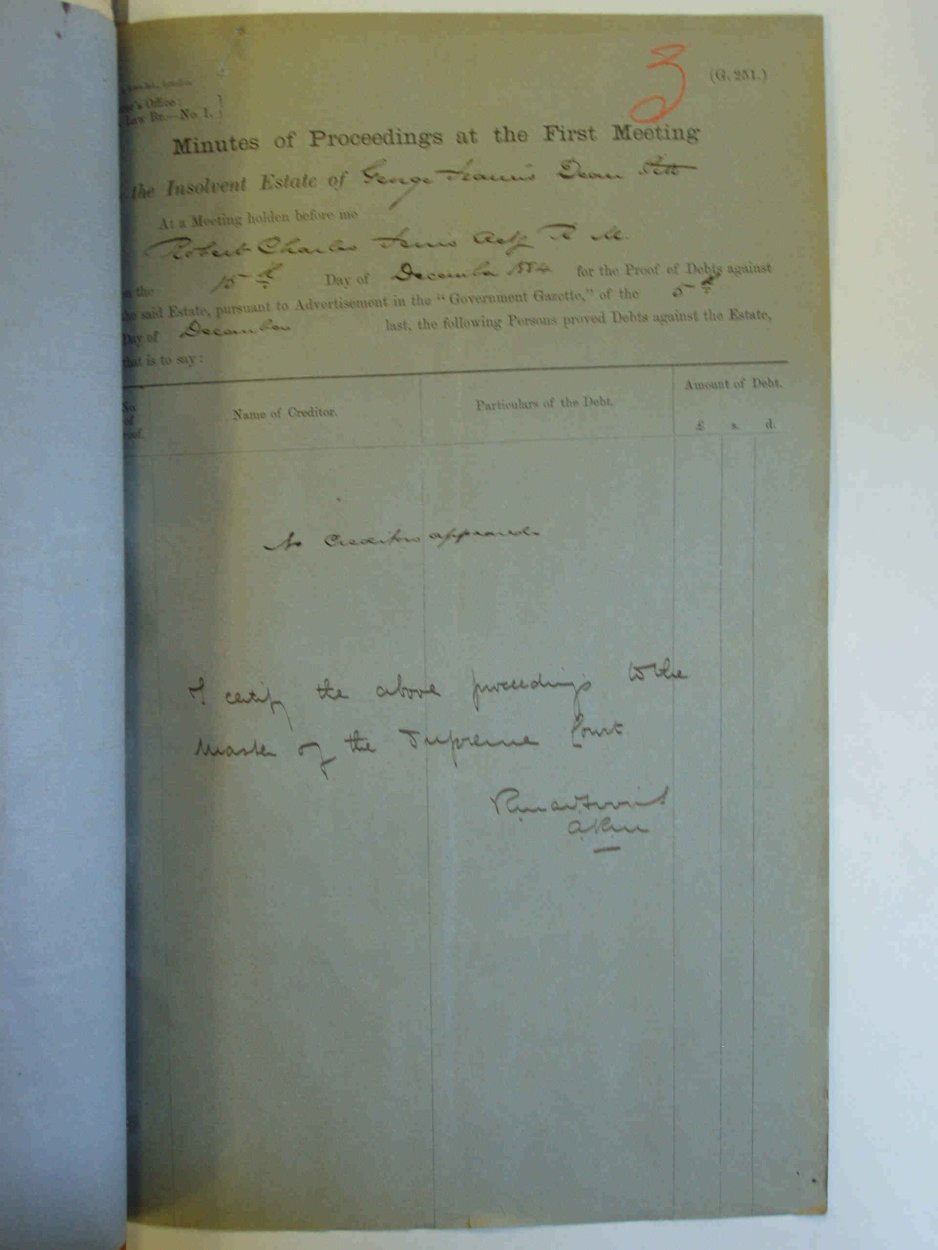 3
(G. 251.)
's Office:
Law Br.—No 1.
Minutes of Proceedings at the First Meeting
the Insolvent Estate of George Francis Dean
At a Meeting holden before me
Robert Charles Actg R M.
the 15th Day of December 1884 for the Proof of Debts against
said Estate, pursuant to Advertisement in the "Government Gazette," of the 5th
Day of December last, the following Persons proved Debts against the Estate,
that is to say:
No of Proof. Name of Creditor. Particulars of the Debt. Amount of Debt.
£ s. d.
No Creditors appeared
I certify the above proceedings to the
Master of the Supreme Court
ARM